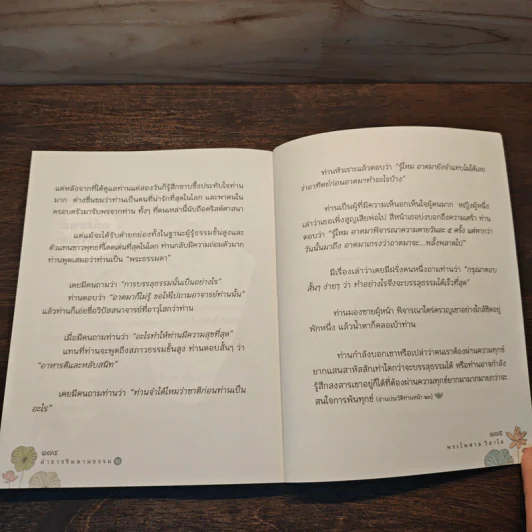 แต่หลังจากที่ได้ดูแลท่านแค่สองวันก็รู้สึกซาบซึ้งประทับใจท่าน
มาก ต่างชื่นชมว่าท่านเป็นคนที่น่ารักที่สุดในโลก และพาคนใน
ครอบครัวมารับพรจากท่าน ทั้งๆ ที่คนเหล่านี้นับถือคริสต์ศาสนา
แต่แม้จะได้รับคำยกย่องทั้งในฐานะผู้รู้ธรรมชั้นสูงและ
ตัวแทนชาวพุทธที่โดดเด่นที่สุดในโลก ท่านกลับมีความถ่อมตัวมาก
ท่านพูดเสมอว่าท่านเป็น “พระธรรมดา”
เคยมีคนถามว่า “การบรรลุธรรมนั้นเป็นอย่างไร”
ท่านตอบว่า “อาตมาก็ไม่รู้ ขอให้ไปถามอาจารย์ท่านนั้น”
แล้วท่านก็เอ่ยชื่อวิปัสสนาจารย์ที่อาวุโสกว่าท่าน
เมื่อมีคนถามท่านว่า “อะไรทำให้ท่านมีความสุขที่สุด”
แทนที่ท่านจะพูดถึงสภาวธรรมชั้นสูง ท่านตอบสั้นๆ ว่า
“อาหารดีและหลับสนิท”
เคยมีคนถามท่านว่า “ท่านจำได้ไหมว่าชาติก่อนท่านเป็น
อะไร”
๑๗๔
ลำธารริมลานธรรม
ท่านหัวเราะแล้วตอบว่า “รู้ไหม อาตมายังจำแทบไม่ได้เลย
ว่าอาทิตย์ก่อนอาตมาทำอะไรบ้าง”
ท่านเป็นผู้ที่มีความเห็นอกเห็นใจผู้คนมาก หญิงผู้หนึ่ง
เล่าว่าเธอเพิ่งสูญเสียพ่อไป สีหน้าเธอบ่งบอกถึงความเศร้า ท่าน
ตอบว่า “รู้ไหม อาตมาพิจารณาความตายวันละ ๕ ครั้ง แต่หากว่า
วันนั้นมาถึง อาตมาเกรงว่าอาตมาจะ...พลั้งพลาดไป”
มีเรื่องเล่าว่าเคยมีฝรั่งคนหนึ่งถามท่านว่า “กรุณาตอบ
สั้นๆ ง่ายๆ ว่า ทำอย่างไรจึงจะบรรลุธรรมได้เร็วที่สุด”
ท่านมองชายผู้หน้า พิจารณาใคร่ครวญเขาอย่างใกล้ชิดอยู่
พักหนึ่ง แล้วน้ำตาก็คลอเบ้าท่าน
ท่านกำลังบอกเขาหรือเปล่าว่าคนเราต้องผ่านความทุกข์
ยากแสนสาหัสสักเท่าใดกว่าจะบรรลุธรรมได้ หรือท่านอาจกำลัง
รู้สึกสงสารเขาอยู่ก็ได้ที่ต้องผ่านความทุกข์ยากมามากมายกว่าจะ
สนใจการพ้นทุกข์ (อ่านประวัติท่านหน้า ๒๓)
๑๗๕
พระไพศาล วิสาโล